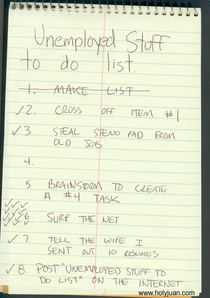 Unemployed Stuff
to do list.
1. MAKE LIST
✓2. CROSS OFF ITEM #1
✓3. STEAL STENO PAD FROM
OLD JOB
4.
5 BRAINSTORM TO CREATE
A #4 TASK
✓✓✓✓✓✓6 SURF THE NET
✓7. TELL THE WIFE I
SENT OUT 10 RESUMES
✓8. POST "UNEMPLOYED STUFF TO
DO LIST" ON THE INTERNET
www.holyjuan.com